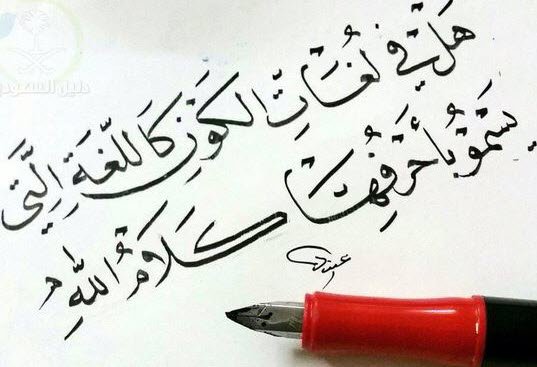 هَل في لُغَاتِ الكَوْنِ كَاللُّغَةِ الَّتي
يَسْمُو بِأَحْرَفِهَا كَلَامُ اللهِ
دليل السعودية